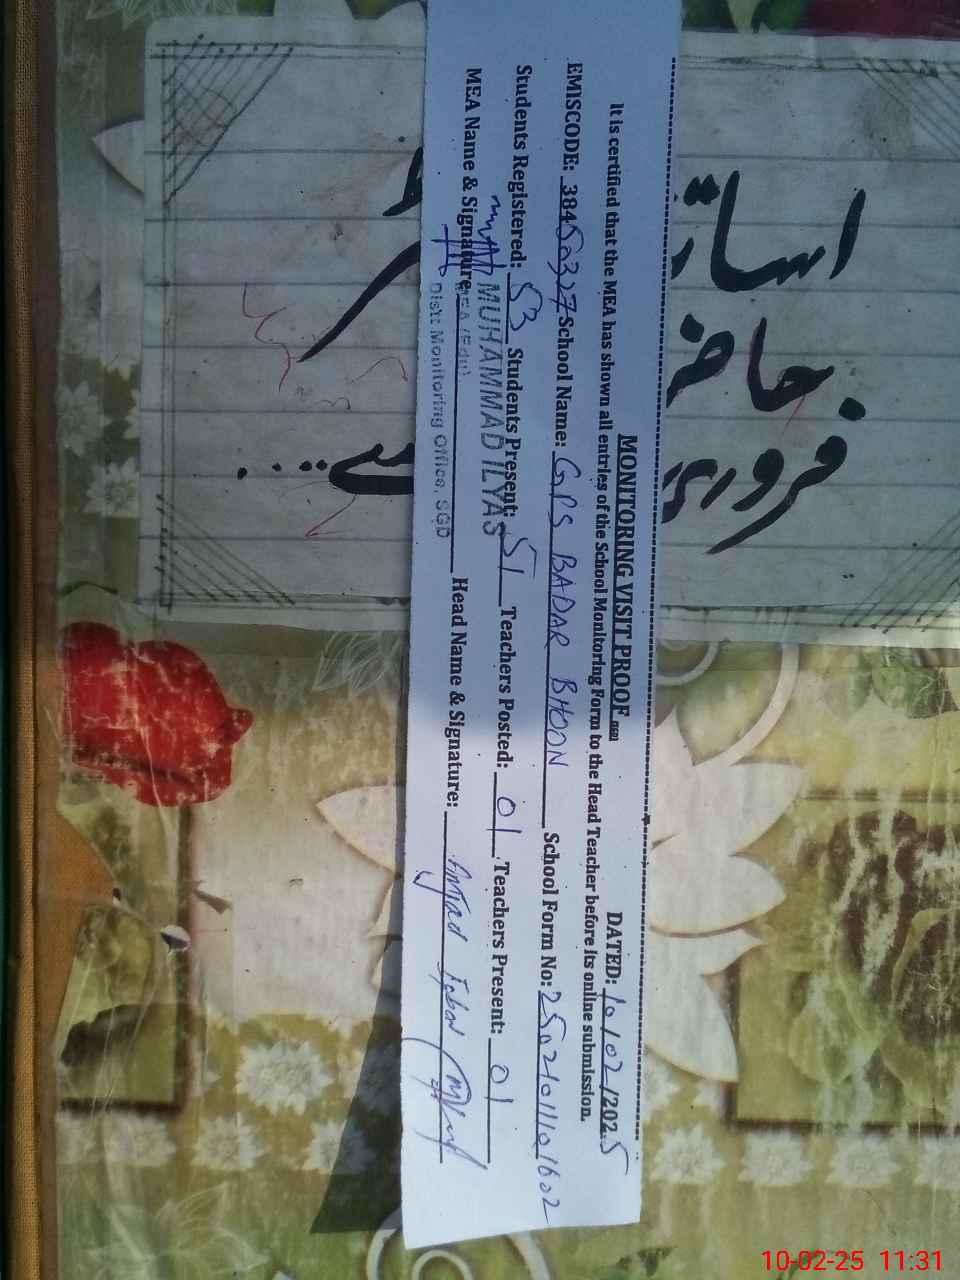 MONITORING VISIT PROOF DATED: 10/02/2025
It is certified that the MEA has shown all entries of the School Monitoring Form to the Head Teacher before its online submission.
EMISCODE: 38450327 School Name: GPS BADAR BHOON School Form No:
Students Registered: 53 Students Present: 51 Teachers Posted: 01 Teachers Present: 01
MEA Name & Signature: Head Name & Signature: Amjad Iqbal
MUHAMMAD ILYAS
MEA (Edu)
Distt: Monitoring Office, SGD
فروری
10-02-25 11:31